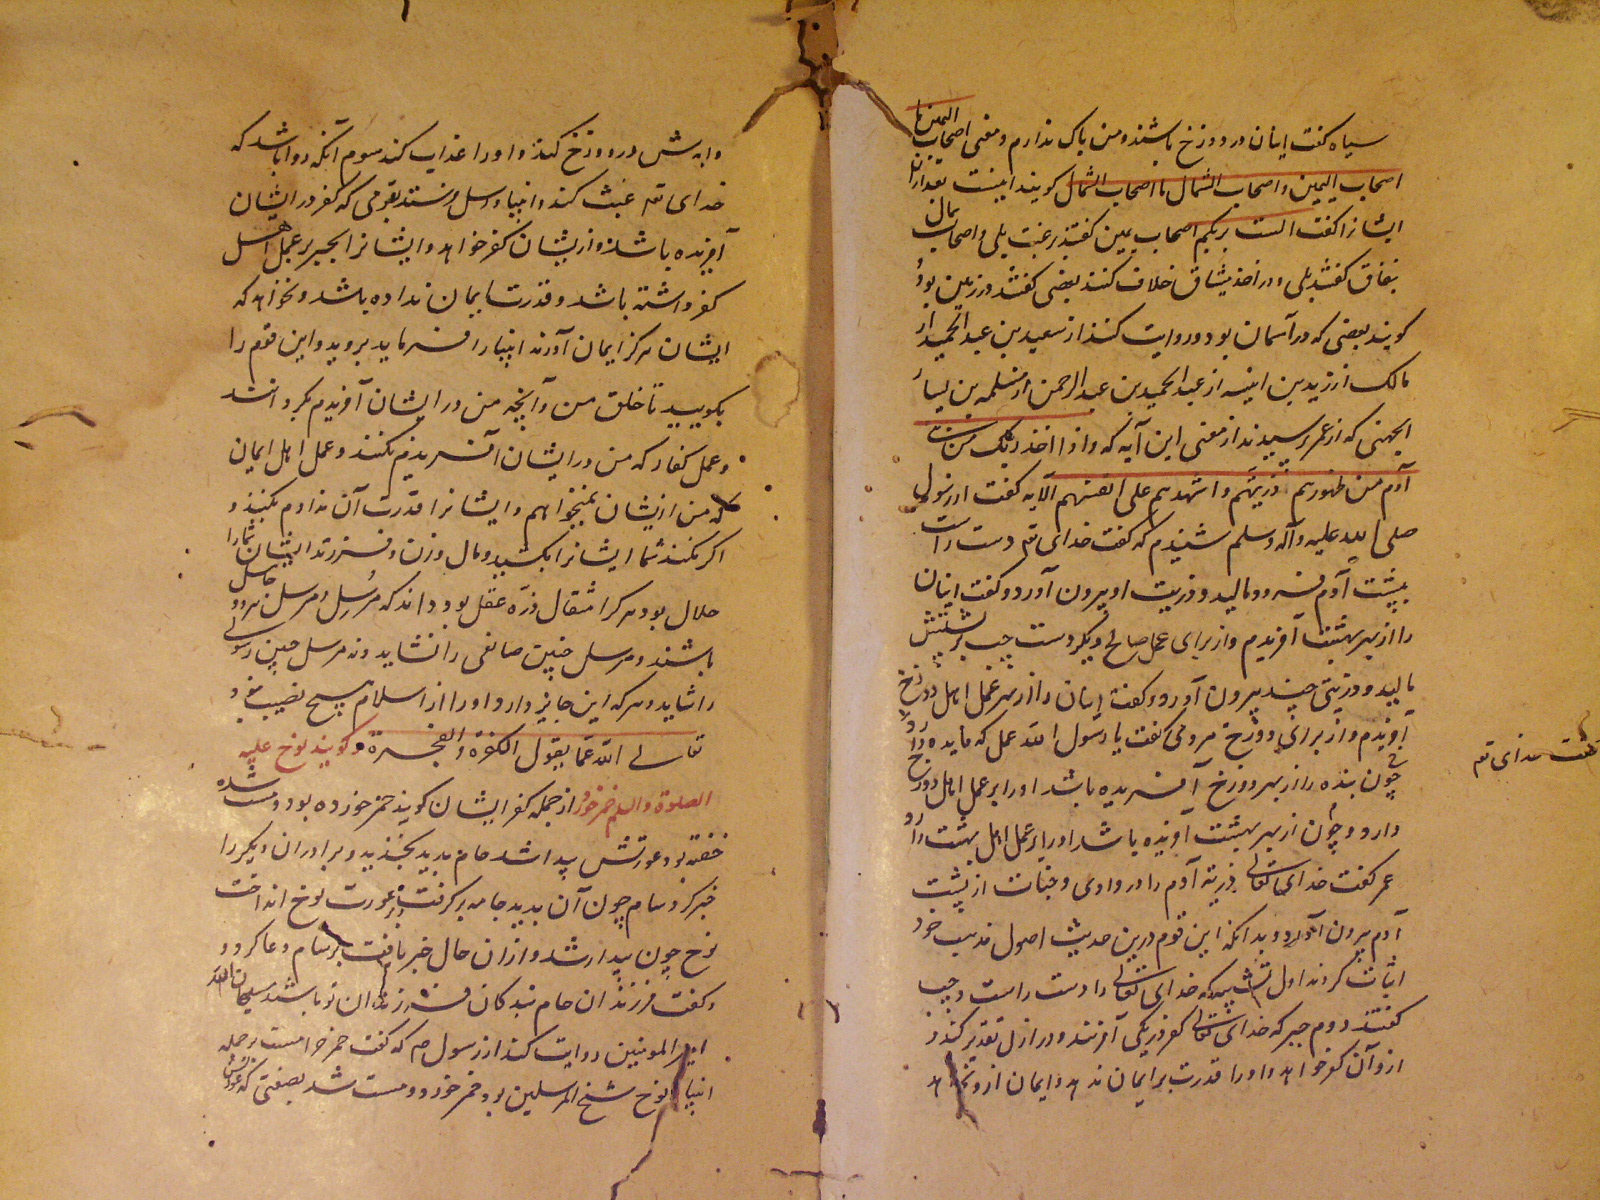 سیاه گفت اینان در دوزخ باشند و من باک ندارم و معنی اصحاب الیمین ما
اصحاب الیمین و اصحاب الشمال ما اصحاب الشمال گویند اینست بعد ازان
ایشانرا گفت الست بربکم اصحاب یمین گفتند برغبت بلی و اصحاب شمال
بنفاق گفتند بلی و در اخذ میثاق خلاف کنند بعضی گفتند در زمین بود و
گویند بعضی که در آسمان بود و روایت کنند از سعید بن عبد الحمید از
مالک از زید بن انیسه از عبد الحمید بن عبد الرحمن از مسلمه بن یسار
الجهنی که از عمر پرسیدند از معنی این آیه که و اذ اخذ ربک من بنی
آدم من ظهورهم ذریتهم و اشهدهم علی انفسهم الآیه گفت از رسول
صلی الله علیه و آله و سلم شنیدم که گفت خدای تع دست راست
بپشت آدم فرو مالید و ذریت او بیرون آورد و گفت اینان
را از بهر بهشت آفریدم و از برای عمل صالح و دیگر دست چپ بر پشتش
مالید و ذریتی چند بیرون آورد و گفت اینان را از بهر عمل اهل دوزخ
آفریدم و از برای دوزخ مردمی گفت یا رسول الله عمل که ماید
چون بنده را از بهر دوزخ آفریده باشد او را بر عمل اهل دوزخ
دارد و چون از بهر بهشت آفریده باشد او را بر عمل اهل بهشت دارد
عمر گفت خدای تعالی ذریة آدم را در وادی و جنات از پشت
آدم بیرون آورد و بدانکه این قوم درین حدیث اصول مذهب خود
اثبات کردند اول تشبیه که خدای تعالی را دست راست و چپ
گفتند دوم جبر که خدای تعالی کفر در یکی آفریند و در ازل تقدیر کند و
ازو آن کفر خواهد و او را قدرت بر ایمان ندهد و ایمان ازو نخواهد
گفت خدای تع
در دوزخ کند و او را عذاب کند سوم آنکه روا باشد که
خدای تع عبث کند و انبیا و رسل فرستد بقومی که کفر در ایشان
آفریده باشد و ازیشان کفر خواهد و ایشانرا بجبر بر عمل اهل
کفر داشته باشد و قدرت ایمان نداده باشد و نخواهد که
ایشان هرگز ایمان آورند انبیا را فرماید بروید و این قوم را
بگویید تا خلق من و آنچه من در ایشان آفریدم بگردانند
و عمل کفار که من در ایشان آفریدم نکنند و عمل اهل ایمان
که من ازیشان نمیخواهم و ایشانرا قدرت آن ندادم بکنند و
اگر نکنند شما ایشانرا بکشید و مال و زن و فرزند ایشان شما را
حلال بود هر کرا مثقال ذره عقل بود داند که مُرسِل و مرسل هر دو جاهل
باشند و مرسل چنین صانعی را نشاید و نه مرسل چنین رسولی
را شاید و هر که این جایز دارد او را از اسلام هیچ نصیب نبود
تعالی الله عما یقول الکفرة و الفجرة و گویند نوح علیه
الصلوة والسلم خمر خورد از جمله کفر ایشان گویند خمر خورده بود و مست شده
خفته بود عورتش پیدا شد حام بدید بخندید و برادران دیگر را
خبر کرد سام چون آن بدید جامه برگرفت و بر عورت نوح انداخت
نوح چون بیدار شد و ازان حال خبر یافت بر سام دعا کرد و
و گفت فرزندان حام بندگان فرزندان تو باشند سبحان الله
امیر المومنین روایت کند از رسول ص که گفت خمر حرامست بر جمله
انبیا نوح شیخ المرسلین بود خمر خورد و مست شد بصفتی که عورتش